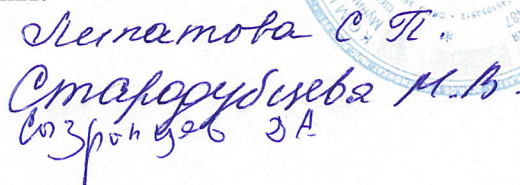 Липатова С.П.
Стародубцева М.В.
Сызранцев ДА